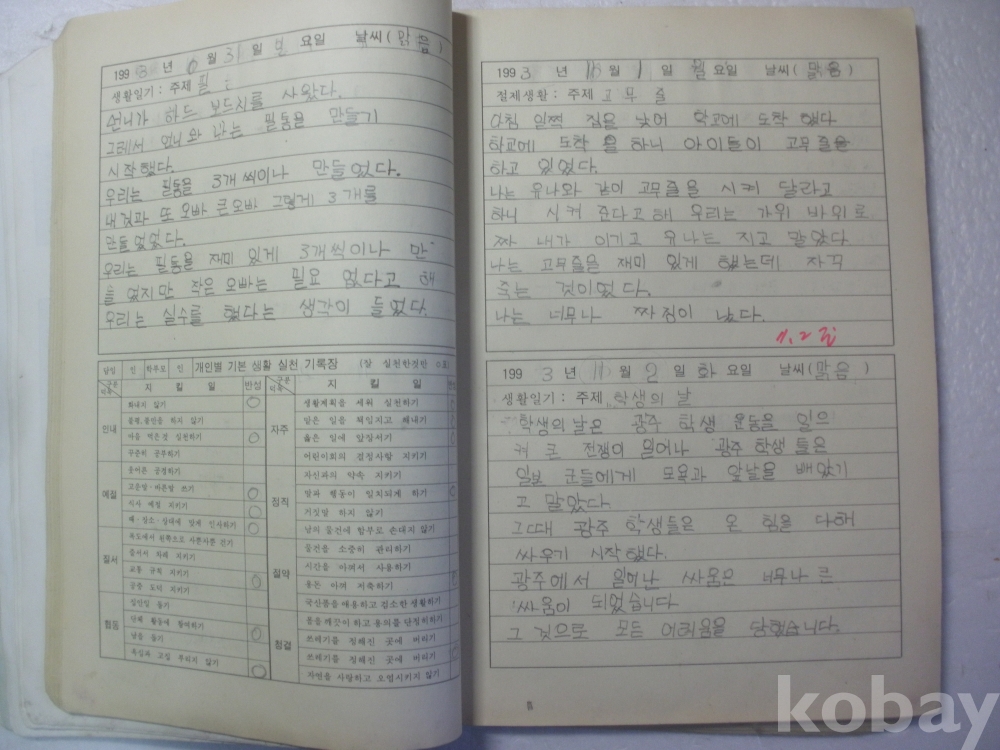 1993 년 월 31 일 요일 날씨(맑음)
생활일기: 주제 필
언니가 하드 보드지를 사왔다.
그레서 언니와 나는 필통을 만들기
시작했다.
우리는 필통을 3개 씩이나 만들었다.
내것과 또 오빠 큰오빠 그렇게 3개를
만들었었다.
우리는 필통을 재미 있게 3개씩이나 만
들 었지만 작은 오빠는 필요 없다고 해
우리는 실수를 했다는 생각이 들었다.
담임 인 학부모 인 개인별 기본 생활 실천 기록장 (잘 실천한것만 ○표)
구분 덕목 지 킬 일 반성 구분 덕목 지 킬 일
인내
화내지 않기 ○
불평, 불만을 하지 않기
마음 먹은것 실천하기 ○
꾸준히 공부하기
예절
웃어른 공경하기
고운말·바른말 쓰기 ○
식사 예절 지키기 ○
때·장소·상대에 맞게 인사하기 ○
질서
복도에서 왼쪽으로 사뿐사뿐 걷기
줄서서 차례 지키기
교통 규칙 지키기
공중 도덕 지키기 ○
협동
집안일 돕기
단체 활동에 참여하기
남을 돕기 ○
욕심과 고집 부리지 않기 ○
자주
생활계획을 세워 실천하기
맡은 일을 책임지고 해내기
옳은 일에 앞장서기
어린이회의 결정사항 지키기
정직
자신과의 약속 지키기
말과 행동이 일치되게 하기
거짓말 하지 않기
남의 물건에 함부로 손대지 않기
절약
물건을 소중히 관리하기
시간을 아껴서 사용하기
용돈 아껴 저축하기
국산품을 애용하고 검소한 생활하기
청결
몸을 깨끗이 하고 용의를 단정히하기
쓰레기를 정해진 곳에 버리기
쓰레기를 정해진 곳에 버리기
자연을 사랑하고 오염시키지 않기
1993 년 11 월 1 일 월 요일 날씨(맑음)
절제생활: 주제 고무 줄
아침 일찍 집을 낮어 학교에 도착 했다
학교에 도착 을 하니 아이들이 고무줄을
하고 있었다.
나는 유나와 같이 고무줄을 시켜 달라고
하니 시켜 준다고 해 우리는 가위 바위로
짜 내가 이기고 유나는 지고 말았다
나는 고무줄을 재미 있게 했는데 자꾸
죽는 것이었다.
나는 너무나 짜점이 났다.
1993 년 11 월 2 일 화 요일 날씨(맑음)
생활일기: 주제 학생의 날
학생의 날은 광주 학생 운동을 일으
켜 큰 전쟁이 일어나 광주 학생 들은
일보 군들에게 모욕과 앞날을 빼았기
고 말았다
그때 광주 학생들은 온 힘을 다해
싸우기 시작했다.
광주에서 일어난 싸움은 너무나 큰
싸움이 되었습니다
그 것으로 모든 어려움을 당했습니다.
kobay